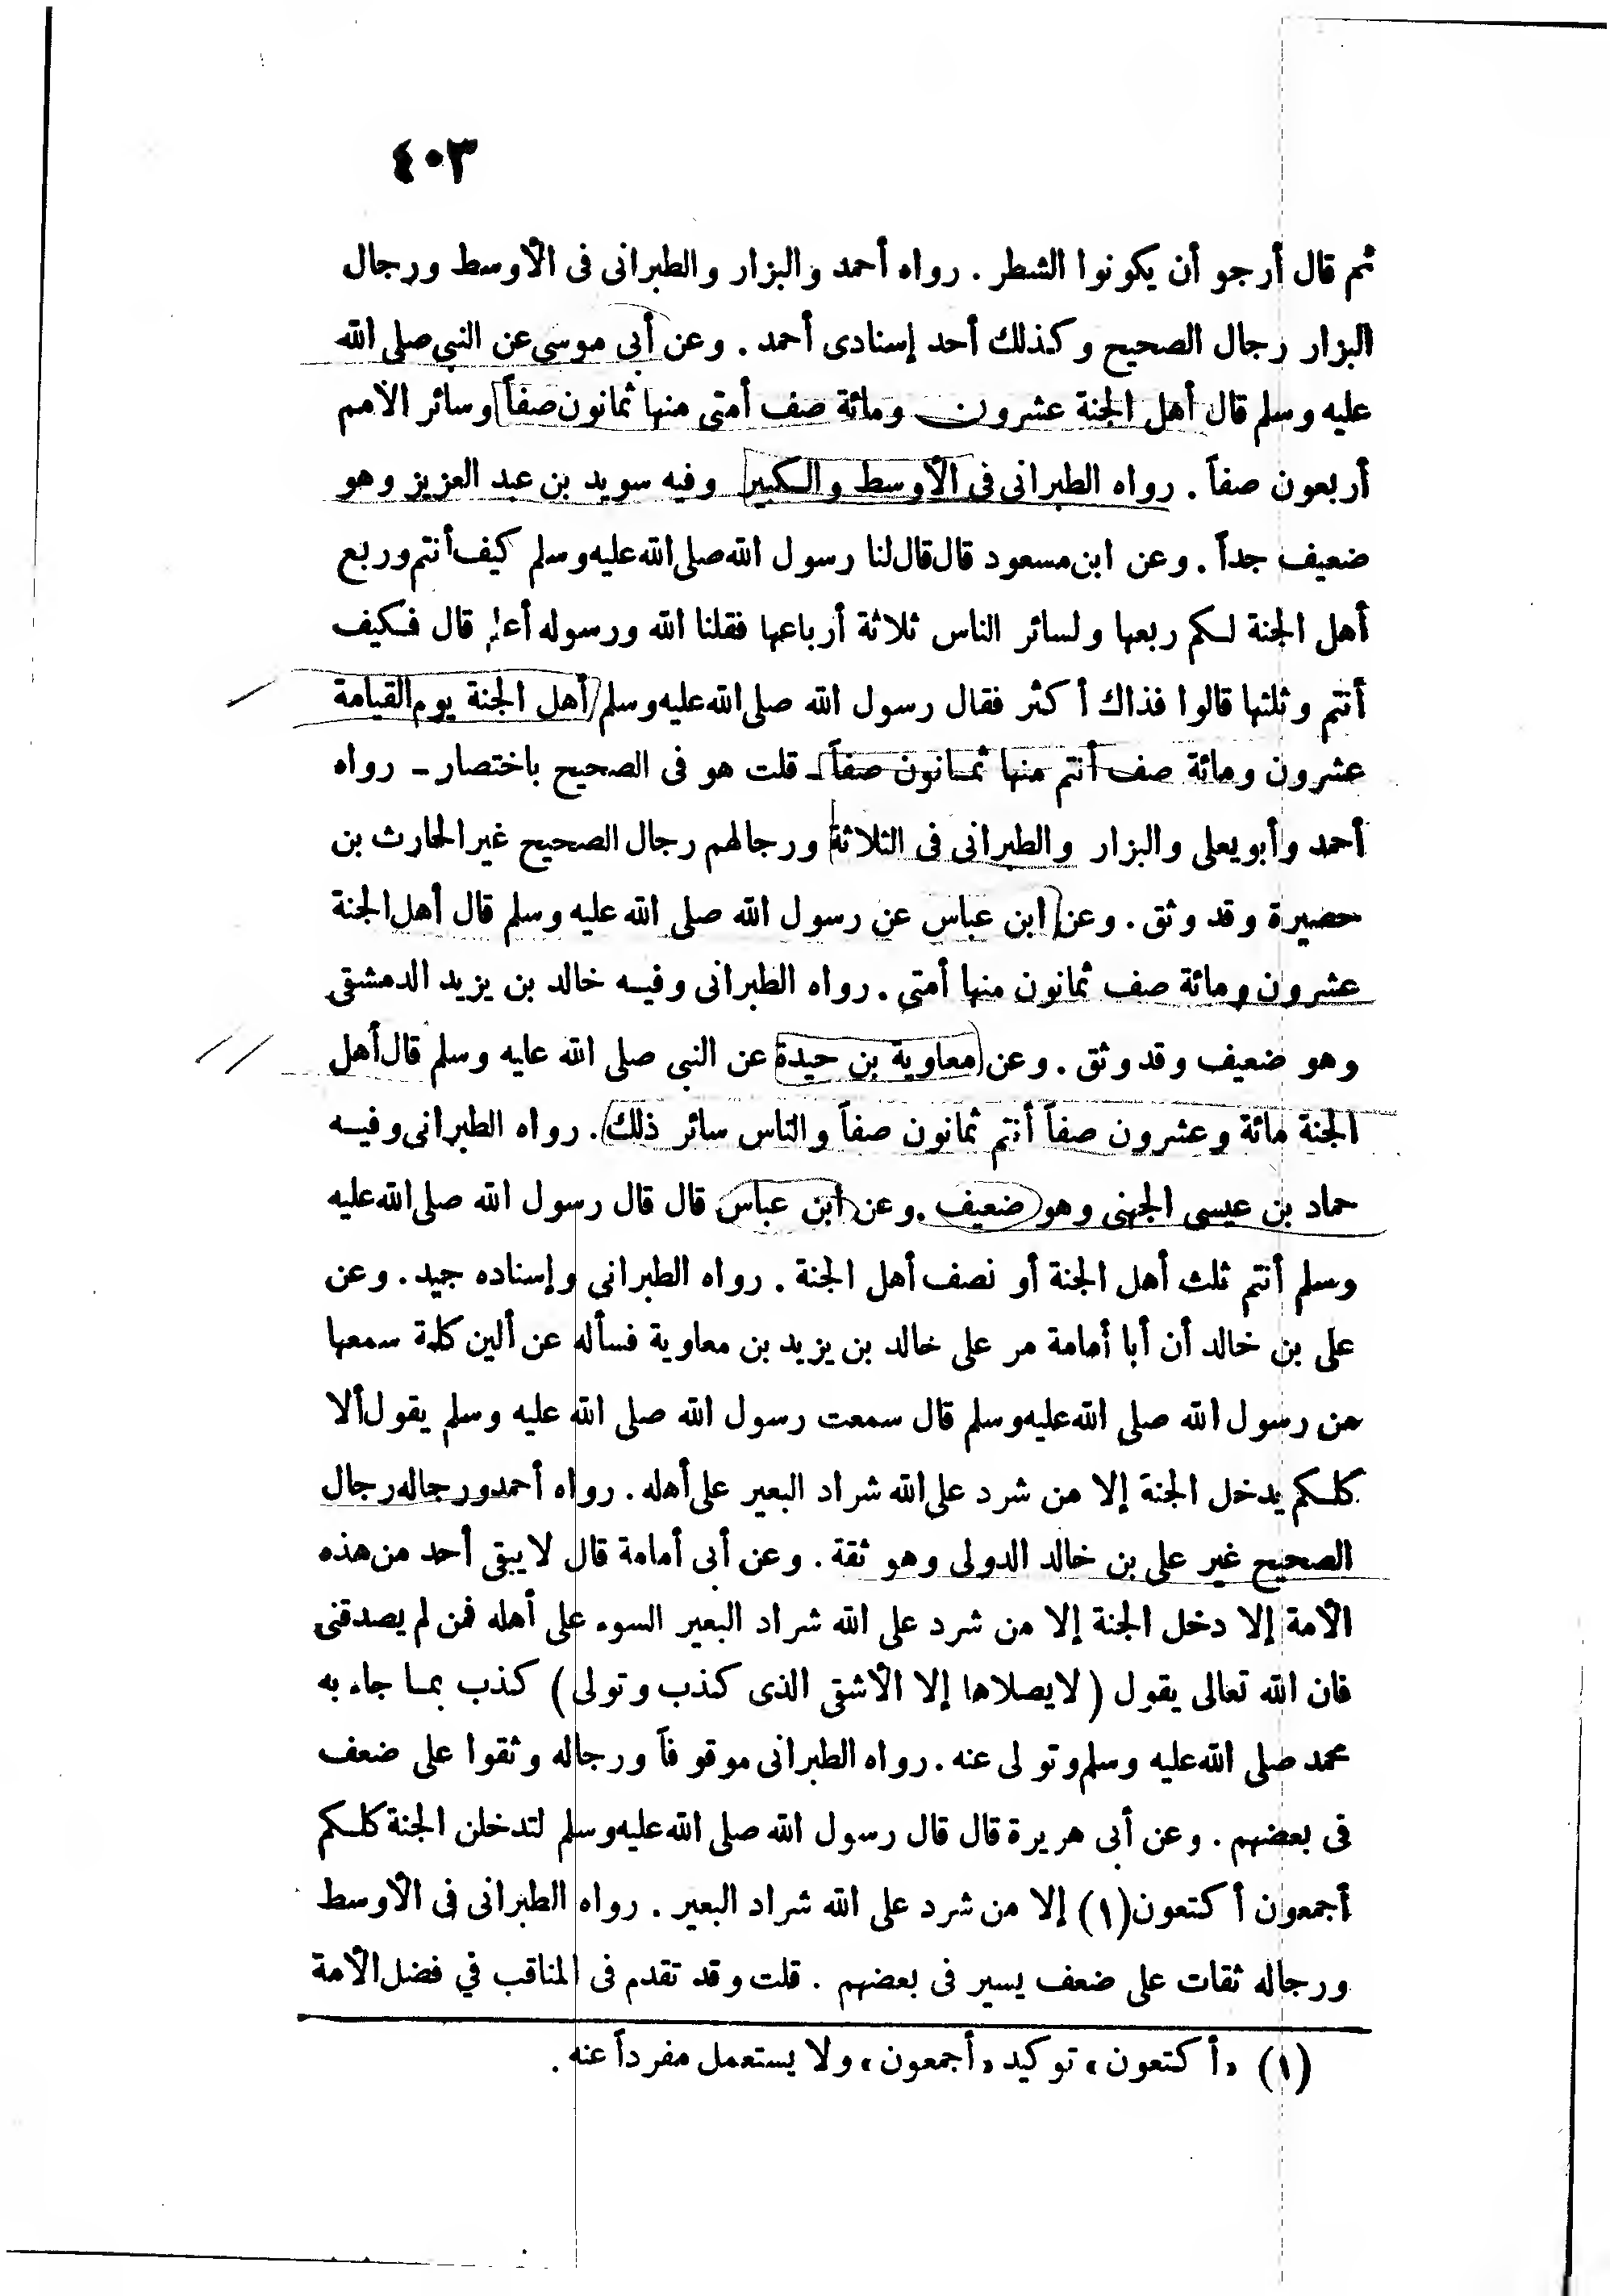 ٤٠٣
ثم قال أرجو أن يكونوا الشطر . رواه أحمد والبزار والطبرانى فى الأوسط ورجال
البزار رجال الصحيح وكذلك أحد إسنادى أحمد . وعن أبى موسى عن النبى صلى الله
عليه وسلم قال أهل الجنة عشرون ومائة صف أمتى منها ثمانون صفاً وسائر الأمم
أربعون صفاً . رواه الطبرانى فى الأوسط والكبير وفيه سويد بن عبد العزيز وهو
ضعيف جداً . وعن ابن مسعود قال قال لنا رسول الله صلى الله عليه وسلم كيف أنتم وربع
أهل الجنة لكم ربعها ولسائر الناس ثلاثة أرباعها فقلنا الله ورسوله أعلم قال فكيف
أنتم وثلثها قالوا فذاك أكثر فقال رسول الله صلى الله عليه وسلم أهل الجنة يوم القيامة
عشرون ومائة صف أنتم منها ثمانون صفاً ـ قلت هو فى الصحيح باختصار ـ رواه
أحمد وأبو يعلى والبزار والطبرانى فى الثلاثة ورجالهم رجال الصحيح غير الحارث بن
حضيرة وقد وثق . وعن ابن عباس عن رسول الله صلى الله عليه وسلم قال أهل الجنة
عشرون ومائة صف ثمانون منها أمتى . رواه الطبرانى وفيه خالد بن يزيد الدمشقى
وهو ضعيف وقد وثق . وعن معاوية بن حيدة عن النبى صلى الله عليه وسلم قال أهل
الجنة مائة وعشرون صفاً أنتم ثمانون صفاً والناس سائر ذلك . رواه الطبرانى وفيه
حماد بن عيسى الجهنى وهو ضعيف . وعن ابن عباس قال قال رسول الله صلى الله عليه
وسلم أنتم ثلث أهل الجنة أو نصف أهل الجنة . رواه الطبرانى وإسناده جيد . وعن
على بن خالد أن أبا أمامة مر على خالد بن يزيد بن معاوية فسأله عن ألين كلمة سمعها
من رسول الله صلى الله عليه وسلم قال سمعت رسول الله صلى الله عليه وسلم يقول ألا
كلكم يدخل الجنة إلا من شرد على الله شراد البعير على أهله . رواه أحمد ورجاله رجال
الصحيح غير على بن خالد الدولى وهو ثقة . وعن أبى أمامة قال لا يبقى أحد من هذه
الأمة إلا دخل الجنة إلا من شرد على الله شراد البعير السوء على أهله فمن لم يصدقنى
فان الله تعالى يقول ( لا يصلاها إلا الأشقى الذى كذب وتولى ) كذب بما جاء به
محمد صلى الله عليه وسلم وتولى عنه . رواه الطبرانى موقوفاً ورجاله وثقوا على ضعف
فى بعضهم . وعن أبى هريرة قال قال رسول الله صلى الله عليه وسلم لتدخلن الجنة كلكم
أجمعون أكتعون (١) إلا من شرد على الله شراد البعير . رواه الطبرانى فى الأوسط
ورجاله ثقات على ضعف يسير فى بعضهم . قلت وقد تقدم فى المناقب في فضل الأمة
(١) «أكتعون» توكيد «أجمعون» ولا يستعمل مفرداً عنه .